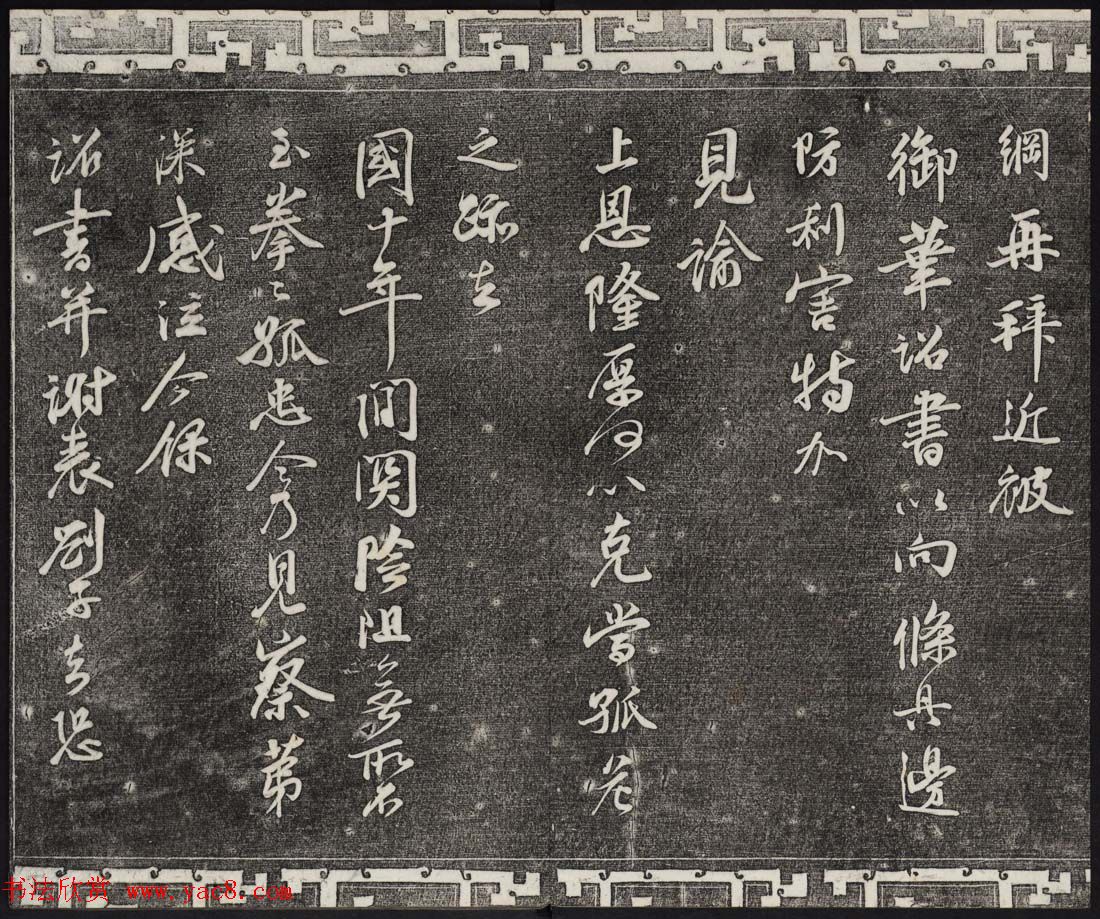 綱再拜近被
御筆詔書以向條具邊
防利害特加
見諭
上恩隆厚何以克當孤危
之跡去
國十年間関險阻無所不
至拳〻孤忠今乃見察第
深感泣今
詔書并謝表劄子去恐
书法欣赏 www.yac8.com